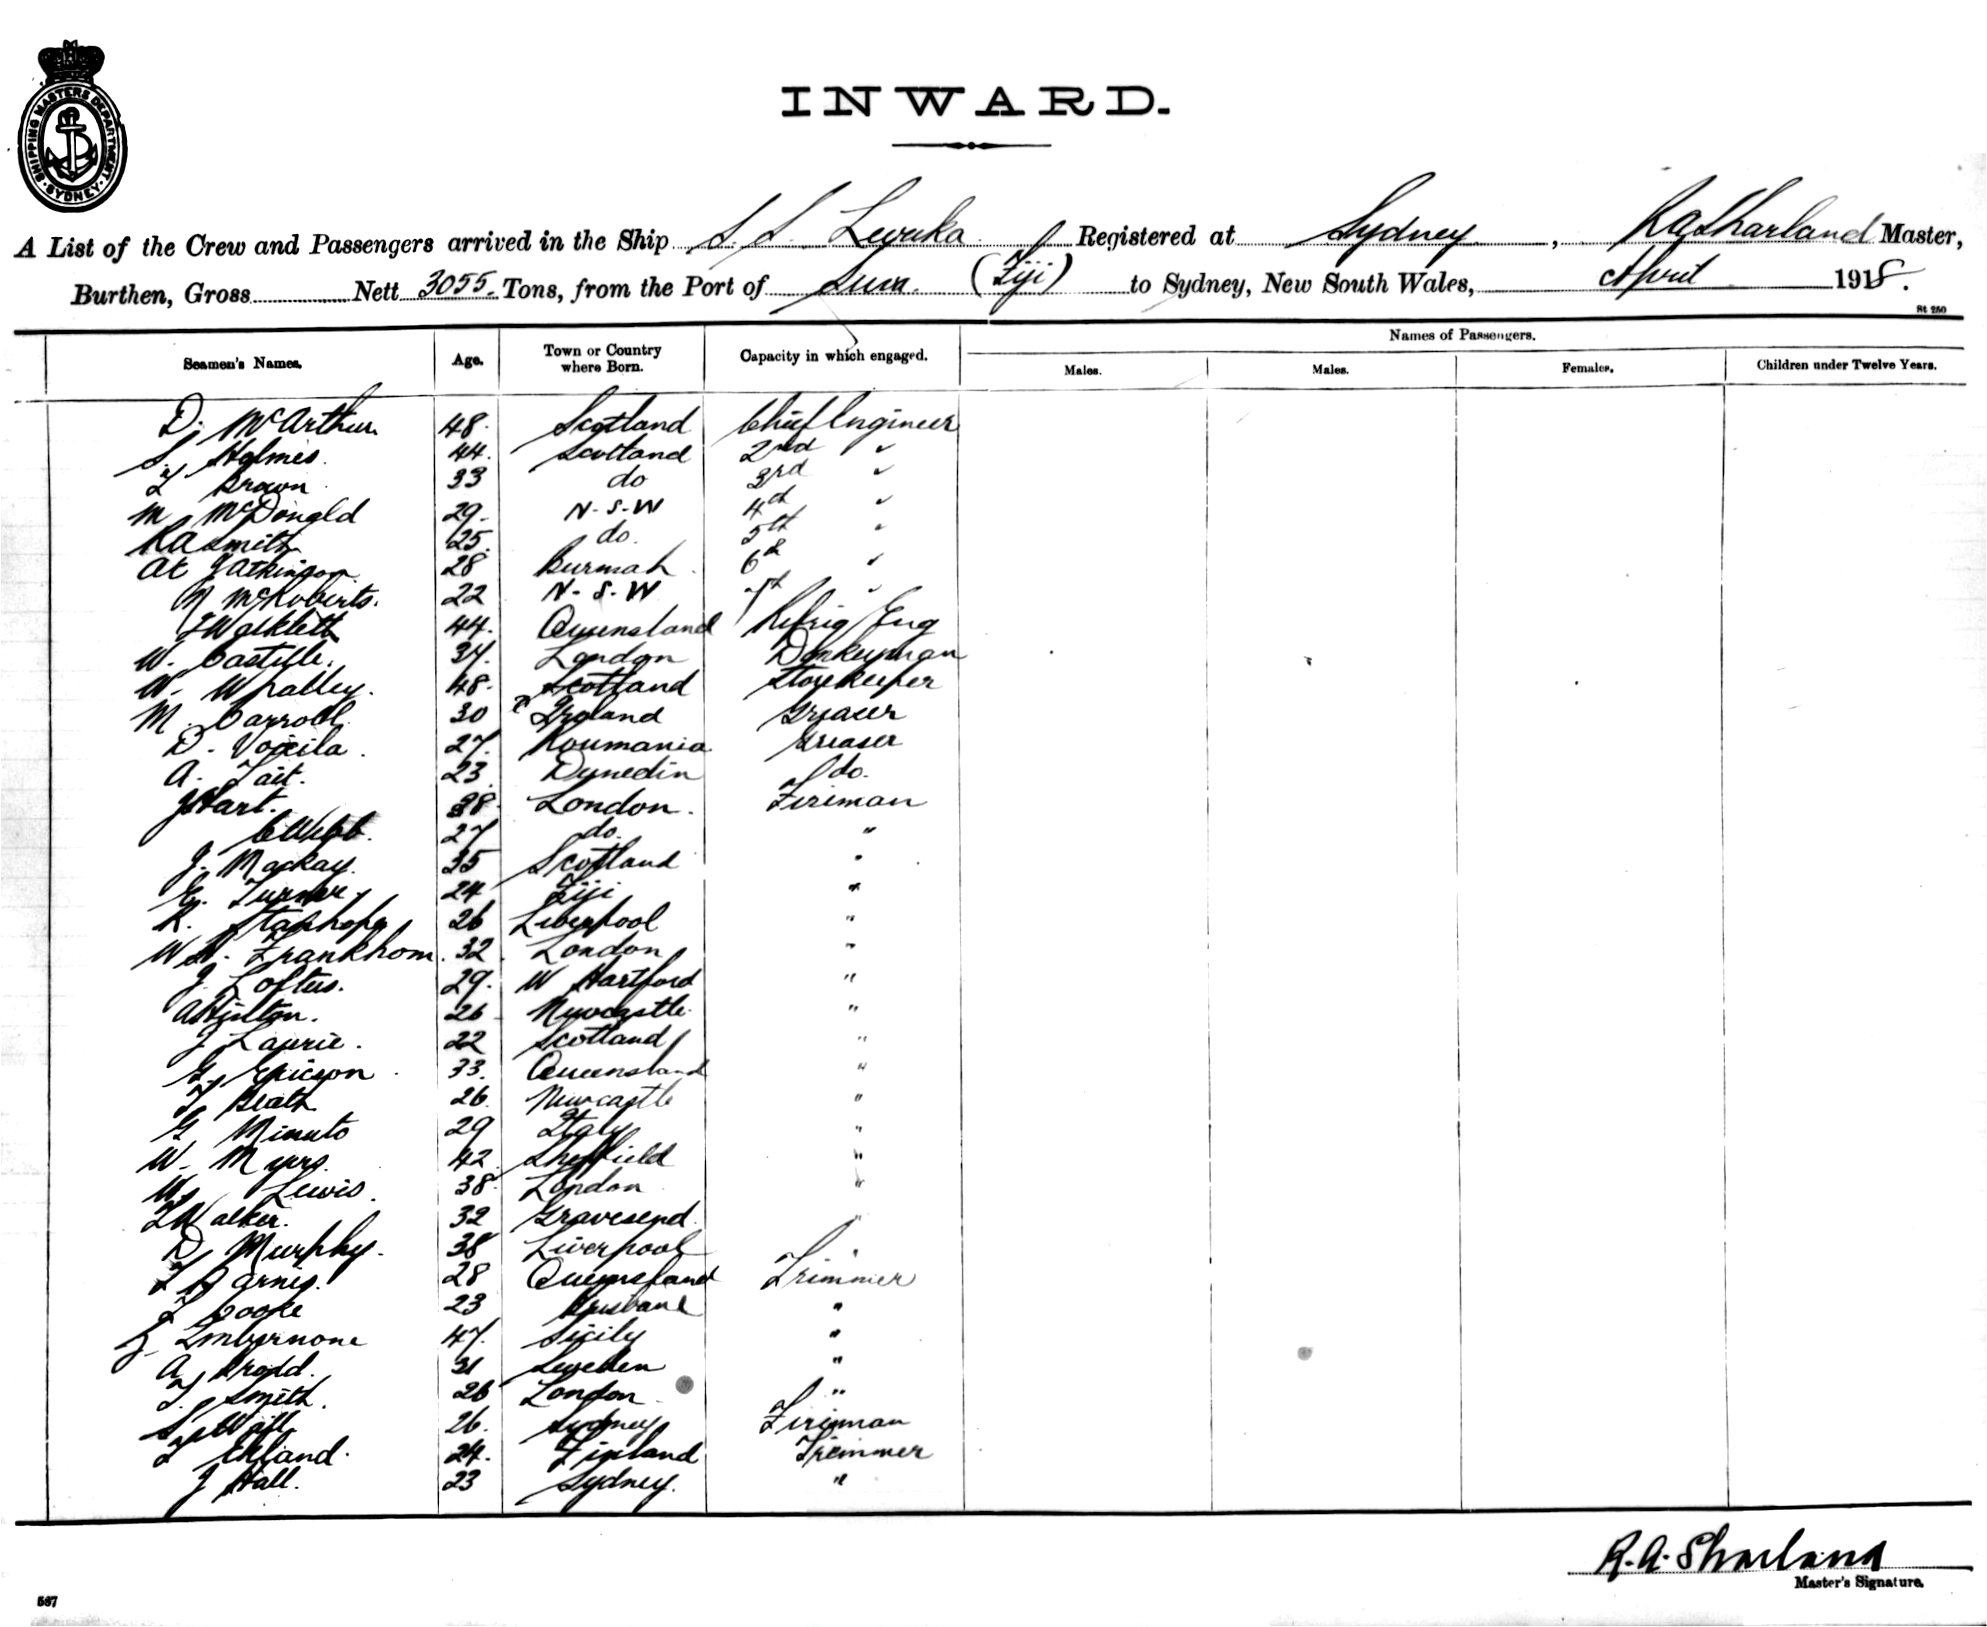 SHIPPING MASTERS DEPARTMENT · SYDNEY ·
INWARD.
A List of the Crew and Passengers arrived in the Ship S. S. Levuka Registered at Sydney, R A Sharland Master,
Burthen, Gross Nett 3055. Tons, from the Port of Suva. (Fiji) to Sydney, New South Wales, April 1918.
St 250
Seamen's Names. Age. Town or Country where Born. Capacity in which engaged. Names of Passengers.
Males. Males. Females. Children under Twelve Years.
D. McArthur 48. Scotland Chief Engineer
S. Holmes. 44. Scotland 2nd "
Brown 33 do 3rd "
M McDonald 29. N-S-W 4th "
R A Smith 25. do. 5th "
Atkinson. 28 Burmah 6th "
N McRoberts. 22 N-S-W 7th "
Walklett 44. Queensland Refrig Eng
W. Castelle. 34. London Donkeyman
W. Whalley. 48. Scotland Storekeeper
M. Carroll 30 Ireland Greaser
D. Voicila. 27. Roumania Greaser
A. Tait. 23. Dunedin do.
J Hart. 38. London. Fireman
C Webb. 27 do. "
J. Mackay. 35 Scotland "
E. Turner. 24 Fiji "
R. Stanhope 26 Liverpool "
W H. Frankhom. 32. London "
J. Loftus. 29. W Hartford "
A Hinton. 26 Newcastle. "
J Laurie. 22 Scotland "
G. Ericson. 33. Queensland "
Heath 26. Newcastle "
G Minuto 29 Italy "
W. Myers. 42. Sheffield "
W. Lewis. 38. London "
Walker. 32 Gravesend. "
D. Murphy. 38 Liverpool "
28 Queensland Trimmer
Cooke 23 Brisbane "
Imbornone 47. Sicily "
A 31 Sweden "
Smith. 26 London "
S. Wall 26. Sydney Fireman
Ekland. 24. Finland Trimmer
J Hall. 23 Sydney. "
R. A. Sharland
Master's Signature.
567